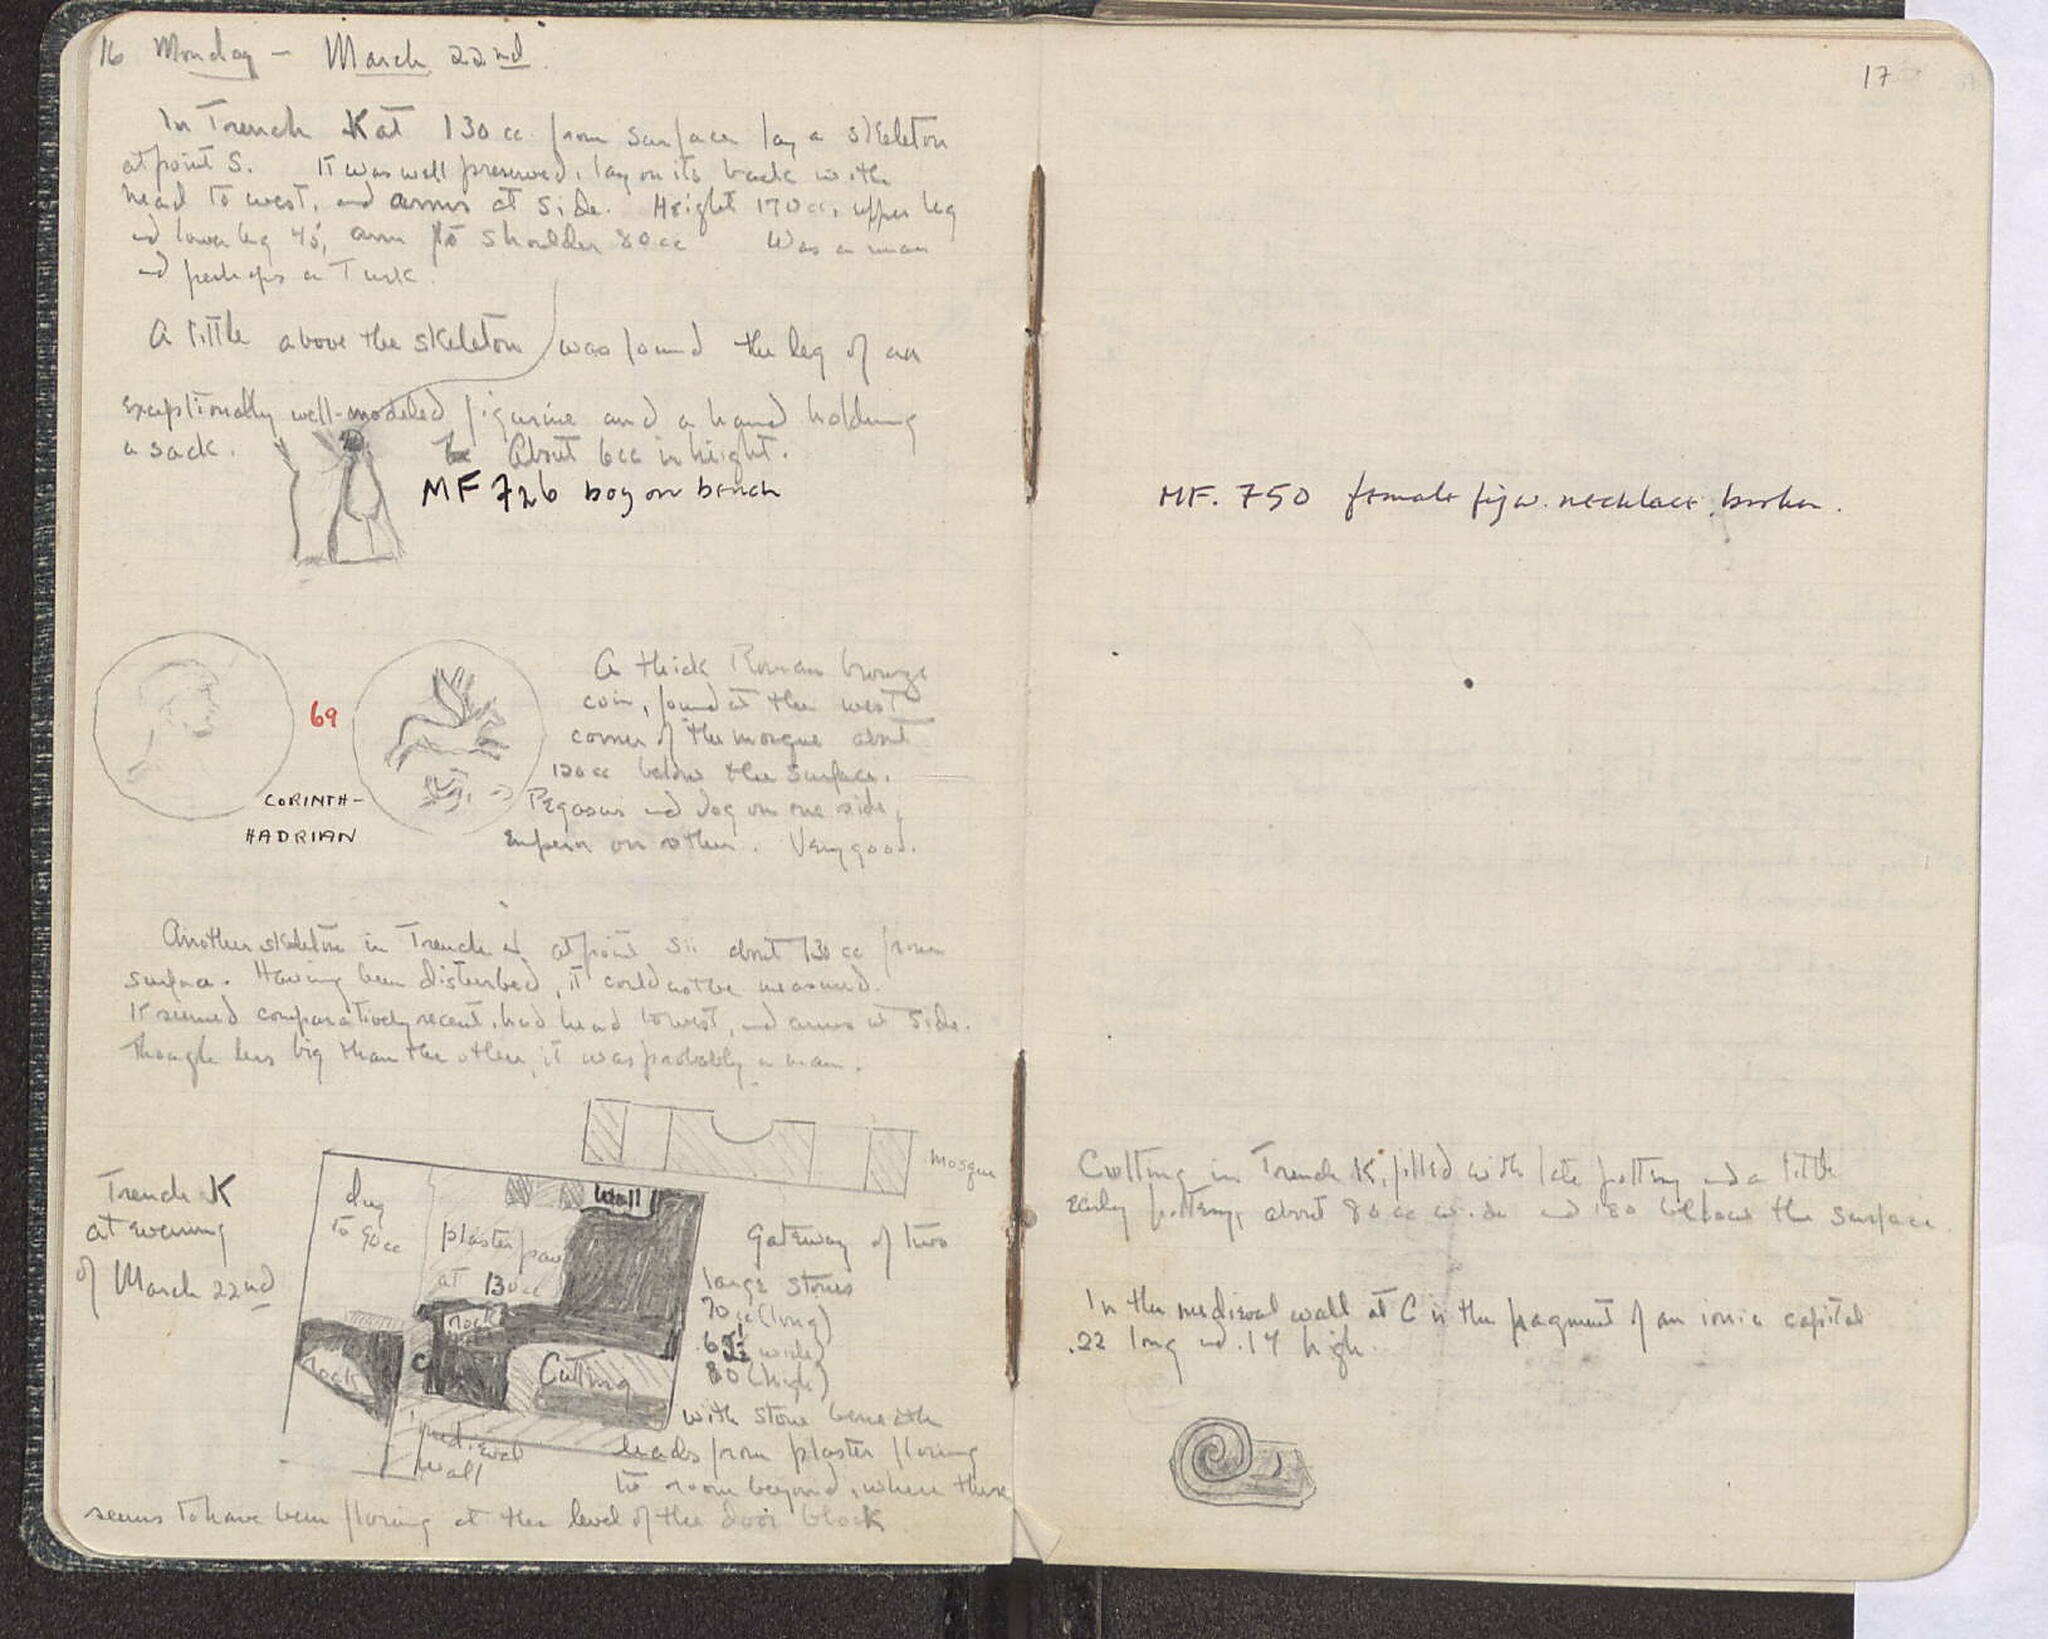 16 Monday - March 22nd.
In Trench K at 130 cc from surface lay a skeleton
at point S. It was well preserved, lay on its back with
head to west, and arms at side. Height 170 cc, upper leg
and lower leg 45, arm to shoulder 80 cc Was a man
and perhaps a Turk.
A little above the skeleton was found the leg of an
exceptionally well-modeled figurine and a hand holding
a sack. About 6cc in height.
MF 726 boy on bench
A thick Roman bronze
coin, found at the west
corner of the mosque about
120 cc below the surface.
Pegasus and dog on one side,
Emperor on other. Very good.
69
CORINTH-
HADRIAN
Another skeleton in Trench at point Sii about 130 cc from
surface. Having been disturbed, it could not be measured.
It seemed comparatively recent, had head to west, and arms at side.
Though less big than the other, it was probably a man.
Mosque
Trench K
at evening
of March 22nd
dug
to 90cc
wall
plaster pav
at 130cc
rock
rock
C
Cutting
medieval
wall
Gateway of two
large stones
70 cc (long)
wide)
80 (high)
with stone beneath
leads from plaster floring
to room beyond, where there
seems to have been floring at the level of the door block
17
MF. 750 female figur. necklace, broken.
Cutting in Trench K, filled with late pottery and a little
early pottery, about 80 cc wide and 180 below the surface
In the medieval wall at C is the fragment of an ionic capital
.22 long and .14 high.